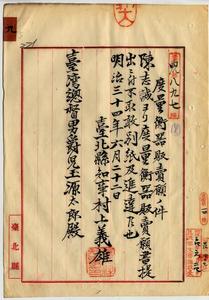 四八九七
度量衡器販賣願ノ件
陳志誠ヨリ度量衡器販賣願書提
出ニ付不取敢別紙及進達候也
明治三十四年六月二十二日
臺北縣知事村上義雄
臺灣總督男爵兒玉源太郎殿
臺北縣